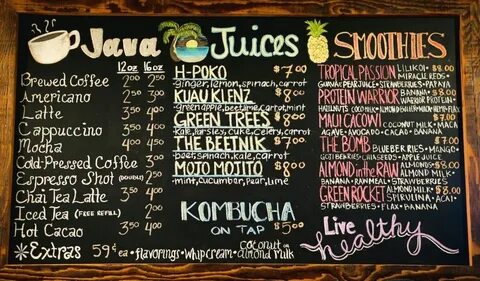 Java
12oz 16oz
Brewed Coffee 2.00 2.50
Americano 2.50 3.00
Latte 3.50 4.00
Cappuccino 3.50 4.00
Mocha 4.00 4.50
Cold-Pressed Coffee 3.00
Espresso Shot (DOUBLE) 2.00
Chai Tea Latte 3.50 4.00
Iced Tea (FREE REFILL) 2.00
Hot Cacao 3.50 4.00
Extras 59¢ea • flavorings • whip cream • coconut or almond milk
Juices
H-POKO $7.00
ginger, lemon, spinach, carrot
KUAU KLENZ $8.00
green apple, beet, lime, carrot, mint
GREEN TREES $8.00
kale, parsley, cuke, celery, carrot
THE BEETNIK $7.00
beet, spinach, kale, carrot
MOJO MOJITO $8.00
mint, cucumber, pear, lime
KOMBUCHA
ON TAP $5.00
SMOOTHIES
TROPICAL PASSION LILIKOI • $8.00
MIRACLE REDS •
GUAVA • PEAR JUICE • STRAWBERRIES • PAPAYA
PROTEIN WARRIOR BANANA • $8.00
WARRIOR PROTEIN •
HAZELNUTS COCO MILK • ALMOND BUTTER
MAUI CACOWI COCONUT MILK • MACA
AGAVE • AVOCADO • CACAO • BANANA
THE BOMB BLUEBERRIES • MANGO •
GOJI BERRIES • CHIA SEEDS • APPLE JUICE
ALMOND IN THE RAW ALMONDS • $8.00
ALMOND MILK •
BANANA • STRAWBERRIES
GREEN ROCKET ALMOND MILK • $8.00
SPIRULINA • ACAI •
STRAWBERRIES • FLAX • BANANA
Live
healthy